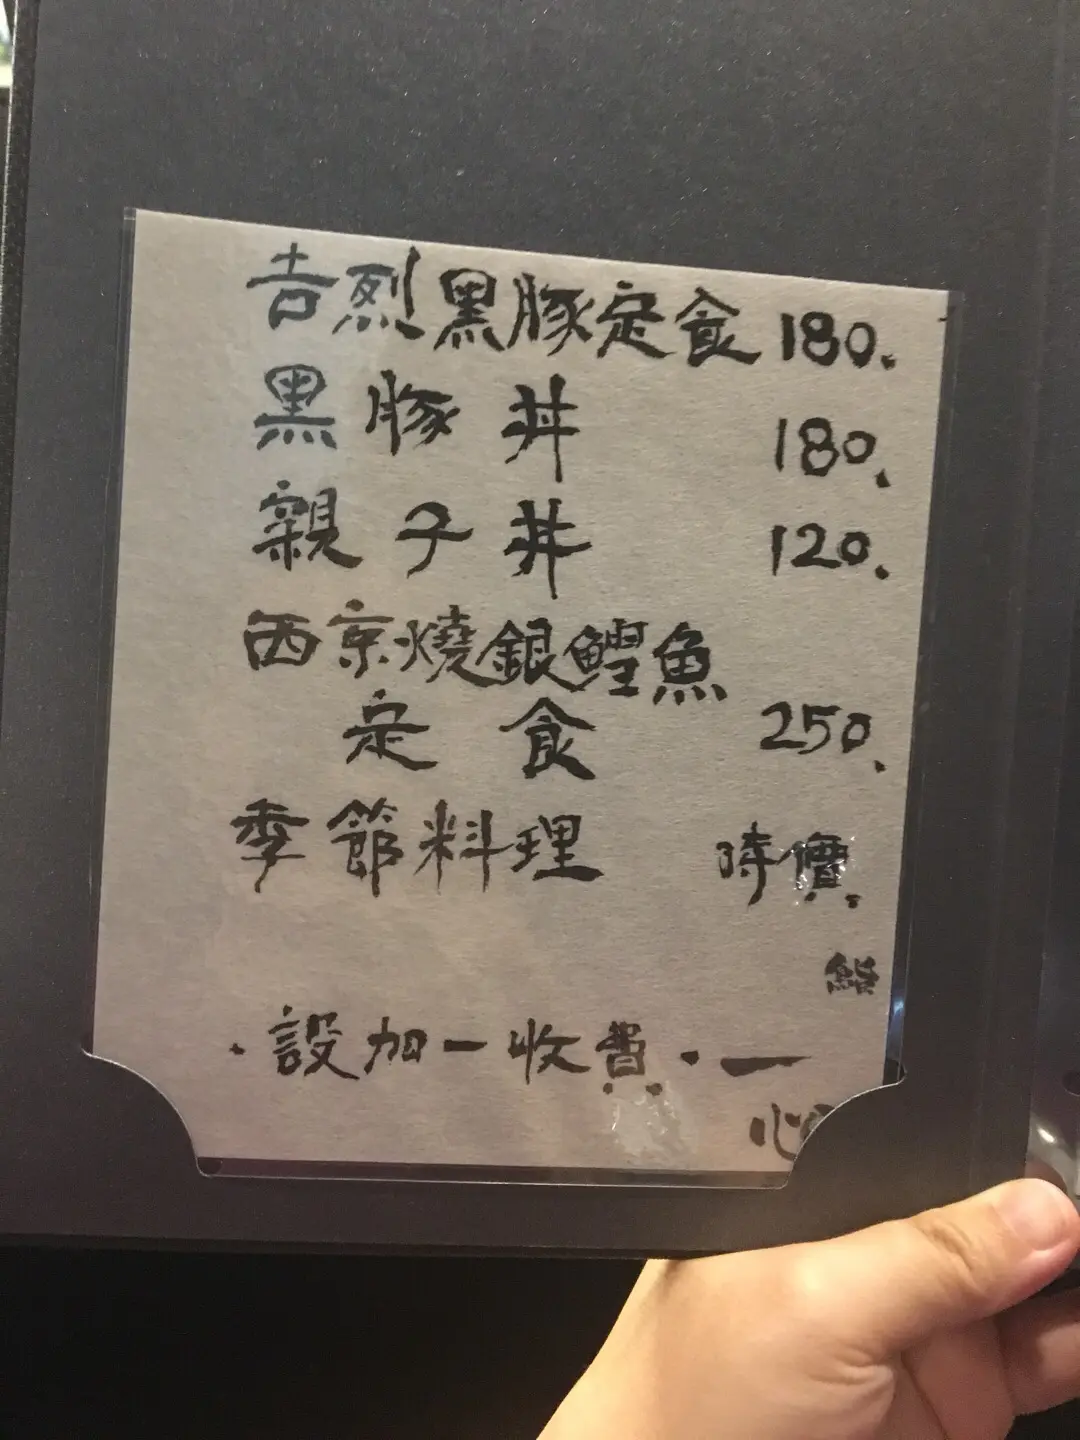 吉烈黑豚定食 180.
黑豚丼 180.
親子丼 120.
西京燒銀鱈魚
定食 250.
季節料理 時價.
鮨
·設加一收費·一
心